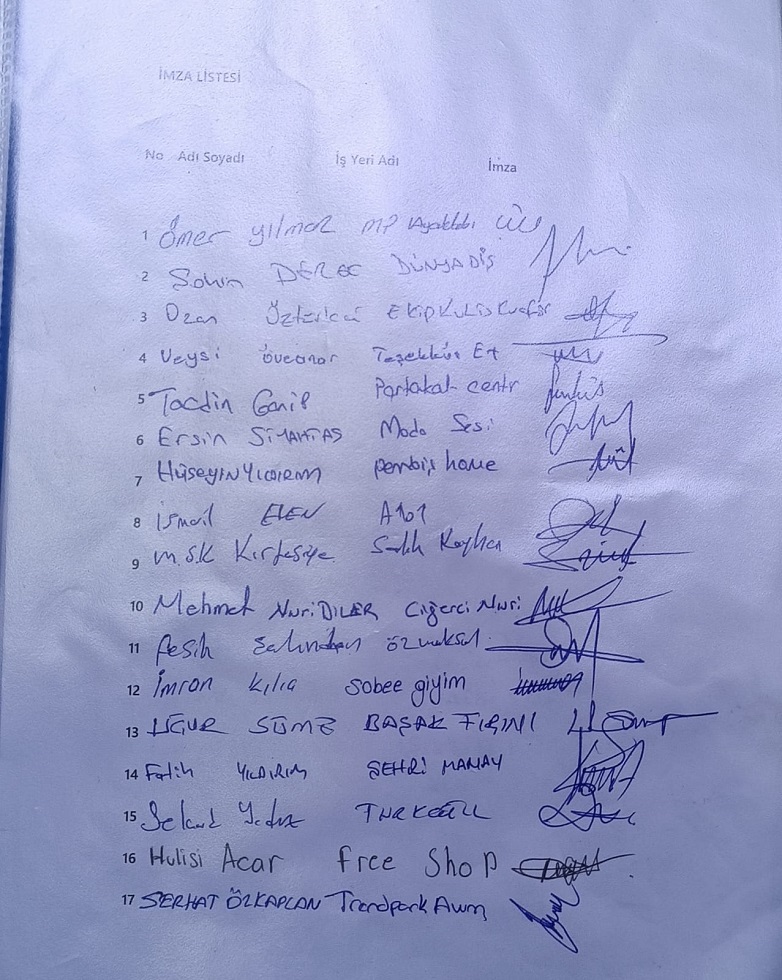 İMZA LİSTESİ
No Adı Soyadı İş Yeri Adı İmza
1 Ömer Yılmaz MP Ayakkabı
2 Şahin DEREC DÜNYADİŞ
3 Ozan EKİP KULİS Kuaför
4 Veysi Teşekkür Et
5 Tacdin Ganis Portakal centr
6 Ersin Moda Sesi
7 HüseyiN YILDIRIM pembiş home
8 İsmail ELEN A101
9 M.S.K Kırtasiye Salih
10 Mehmet Nuri DİLER Ciğerci Nuri
11 Fesih
12 İmran Kılıç Sobee giyim
13 UĞUR SÜMZ BAŞAK FIRINI
14 Fatih YILDIRIM ŞEHRİ MANAV
15 TURKCELL
16 Hulisi Acar free Shop
17 SERHAT ÖZKAPLAN Trendpark Avm